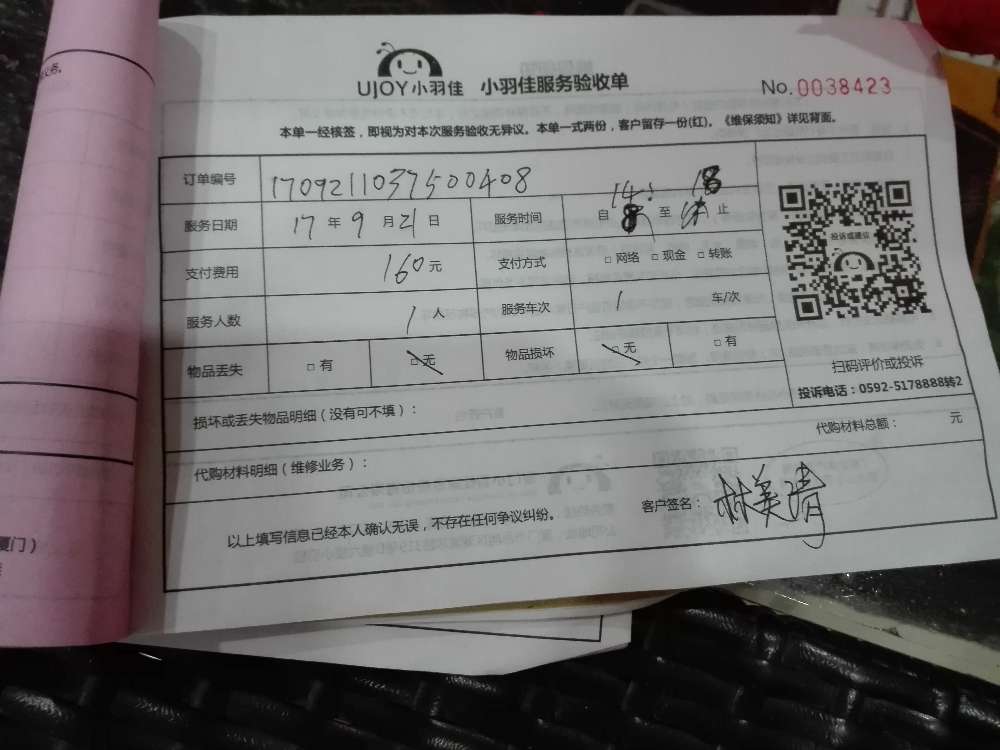 义务。
UJOY小羽佳 小羽佳服务验收单 No.0038423
本单一经核签，即视为对本次服务验收无异议。本单一式两份，客户留存一份(红)。《维保须知》详见背面。
订单编号 1709211037500408
服务日期 17 年 9 月 21 日 服务时间 自 14: 至 18 止
支付费用 160 元 支付方式 □ 网络 □ 现金 □ 转账
服务人数 1 人 服务车次 1 车/次
物品丢失 □ 有 □ 无 物品损坏 □ 无 □ 有
投诉或建议
扫码评价或投诉
投诉电话：0592-5178888转2
损坏或丢失物品明细（没有可不填）：
代购材料总额： 元
代购材料明细（维修业务）：
以上填写信息已经本人确认无误，不存在任何争议纠纷。 客户签名： 林美清
厦门）